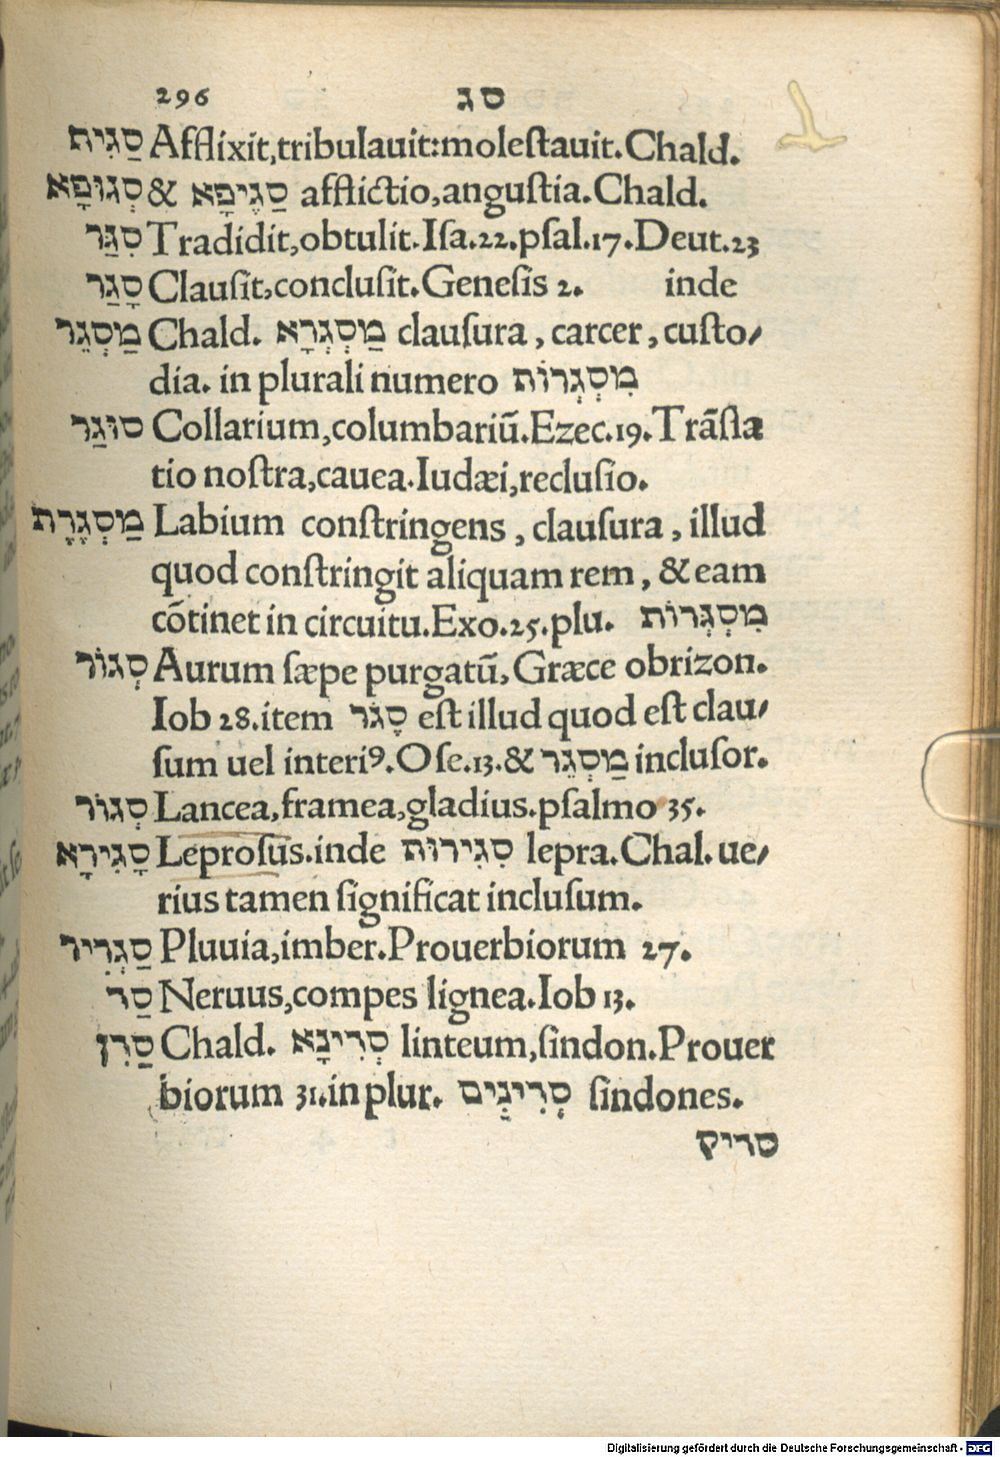 296 סג
סַגִּית Afflixit,tribulauit:moleſtauit.Chald.
סְגוּפָא & סַגֶיפָא afflictio,anguſtia.Chald.
סִגַּר Tradidit,obtulit.Iſa.22.pſal.17.Deut.23
סָגַר Clauſit,concluſit.Geneſis 2. inde
מַסְגֵּר Chald. מַסְגְּרָא clauſura, carcer, cuſto/
dia. in plurali numero מִסְגְּרוֹת
סוּגַר Collarium,columbariũ.Ezec.19.Trãſla
tio noſtra,cauea.Iudæi,recluſio.
מַסְגֶּרֶת Labium conſtringens, clauſura, illud
quod conſtringit aliquam rem, & eam
cõtinet in circuitu.Exo.25.plu. מִסְגְּרוֹת
סְגוֹר Aurum ſæpe purgatũ, Græce obrizon.
Iob 28.item סָגֹר eſt illud quod eſt clau/
ſum uel interiꝰ.Oſe.13.& מַסְגֵּר incluſor.
סְגוֹר Lancea,framea,gladius.pſalmo 35.
סָגִּירָא Leproſus.inde סִגִּירוּת lepra.Chal.ue/
rius tamen ſignificat incluſum.
סַגְרִיר Pluuia,imber.Prouerbiorum 27.
סַד Neruus,compes lignea.Iob 13.
סַדִּן Chald. סְדִינָא linteum,ſindon.Prouer
biorum 31.in plur. סְדִינִים ſindones.
סדיק
Digitalisierung gefördert durch die Deutsche Forschungsgemeinschaft - DFG